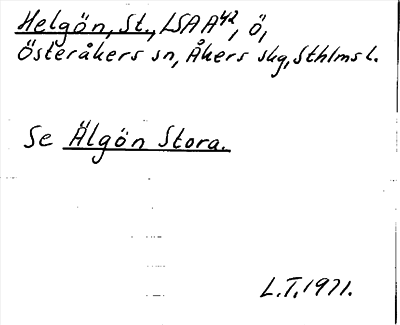 Helgön, St., LSA A42, ö,
Österåkers sn, Åkers skg, Sthlms l.
Se Älgön Stora.
L.T. 1971.